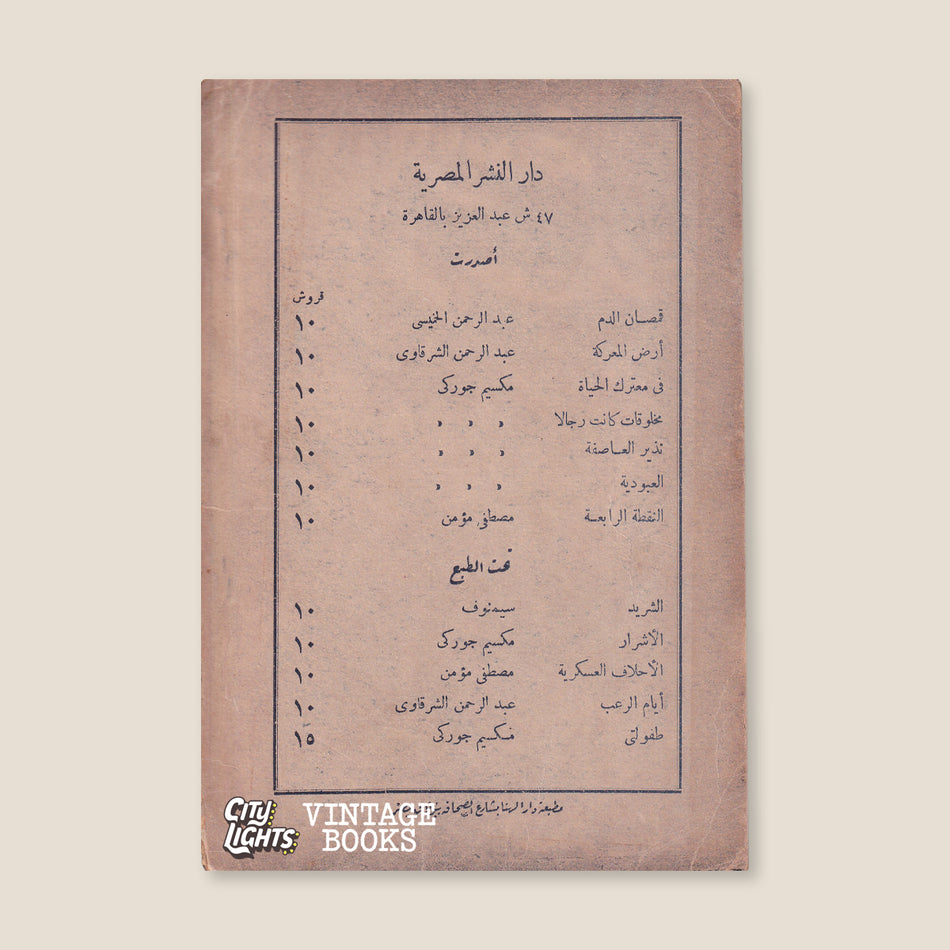 دار النشر المصرية
٤٧ ش عبد العزيز بالقاهرة
أصدرت
قروش
قمصان الدم عبد الرحمن الخميسى ١٠
أرض المعركة عبد الرحمن الشرقاوى ١٠
فى معترك الحياة مكسيم جوركى ١٠
مخلوقات كانت رجالا » » » ١٠
نذير العاصفة » » » ١٠
العبودية » » » ١٠
النقطة الرابعة مصطفى مؤمن ١٠
تحت الطبع
الشريد سيمنوف ١٠
الأشرار مكسيم جوركى ١٠
الأحلاف العسكرية مصطفى مؤمن ١٠
أيام الرعب عبد الرحمن الشرقاوى ١٠
طفولتى مكسيم جوركى ١٥
مطبعة دار الهنا بشارع الصحافة
CITY LIGHTS
VINTAGE BOOKS